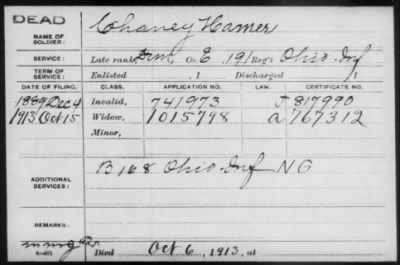 DEAD
NAME OF SOLDIER: Chaney Hamer
SERVICE: Late rank, Co. E, 191 Reg't Ohio Inf
TERM OF SERVICE: Enlisted , 1 Discharged , 1
DATE OF FILING. CLASS. APPLICATION NO. LAW. CERTIFICATE NO.
1889 Dec 4 Invalid, 741973 817990
1913 Oct 15 Widow, 1015798 a 767312
Minor,
ADDITIONAL SERVICES: B 168 Ohio Inf NG
REMARKS:
Died Oct 6, 1913, at